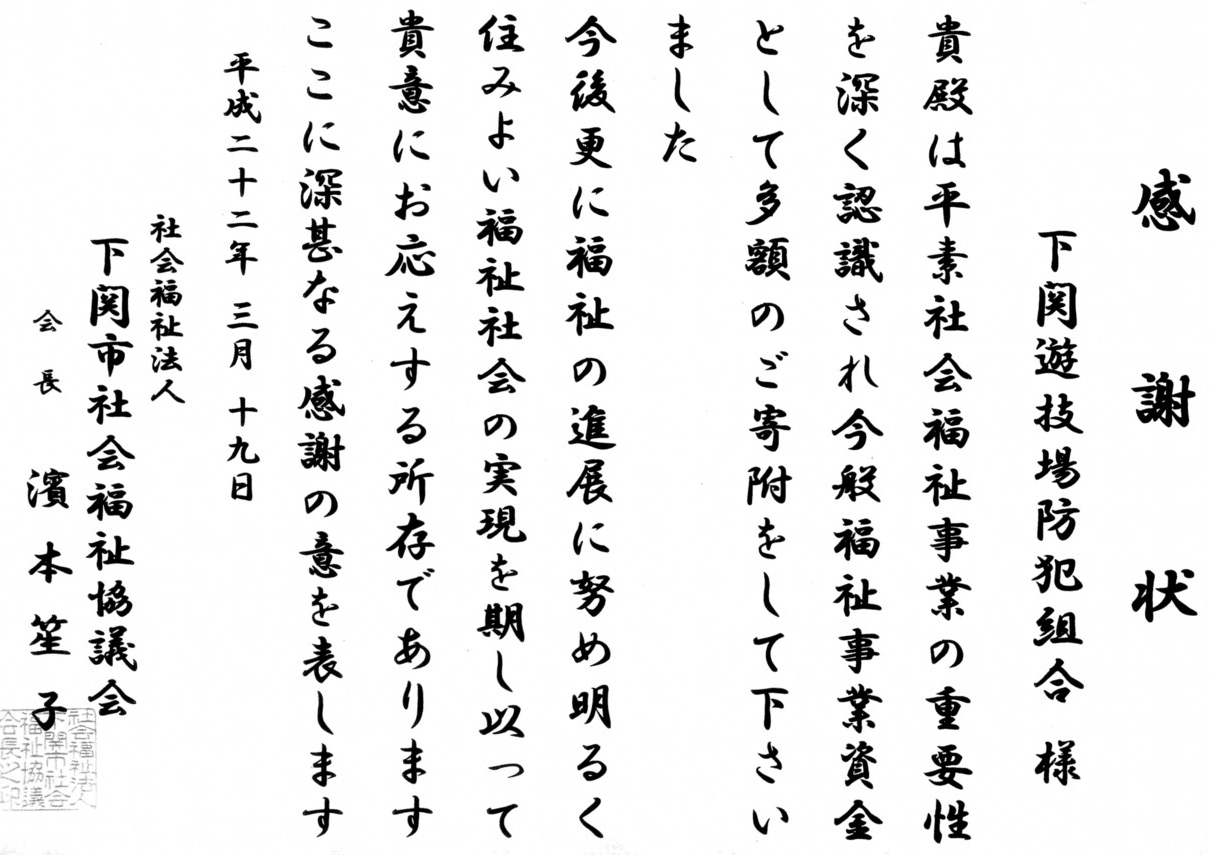 感謝状
下関遊技場防犯組合 様
貴殿は平素社会福祉事業の重要性
を深く認識され今般福祉事業資金
として多額のご寄附をして下さい
ました
今後更に福祉の進展に努め明るく
住みよい福祉社会の実現を期し以って
貴意にお応えする所存であります
ここに深甚なる感謝の意を表します
平成二十二年 三月 十九日
社会福祉法人
下関市社会福祉協議会
会長 濱本笙子
社会福祉法人
下関市社会
福祉協議
会長之印